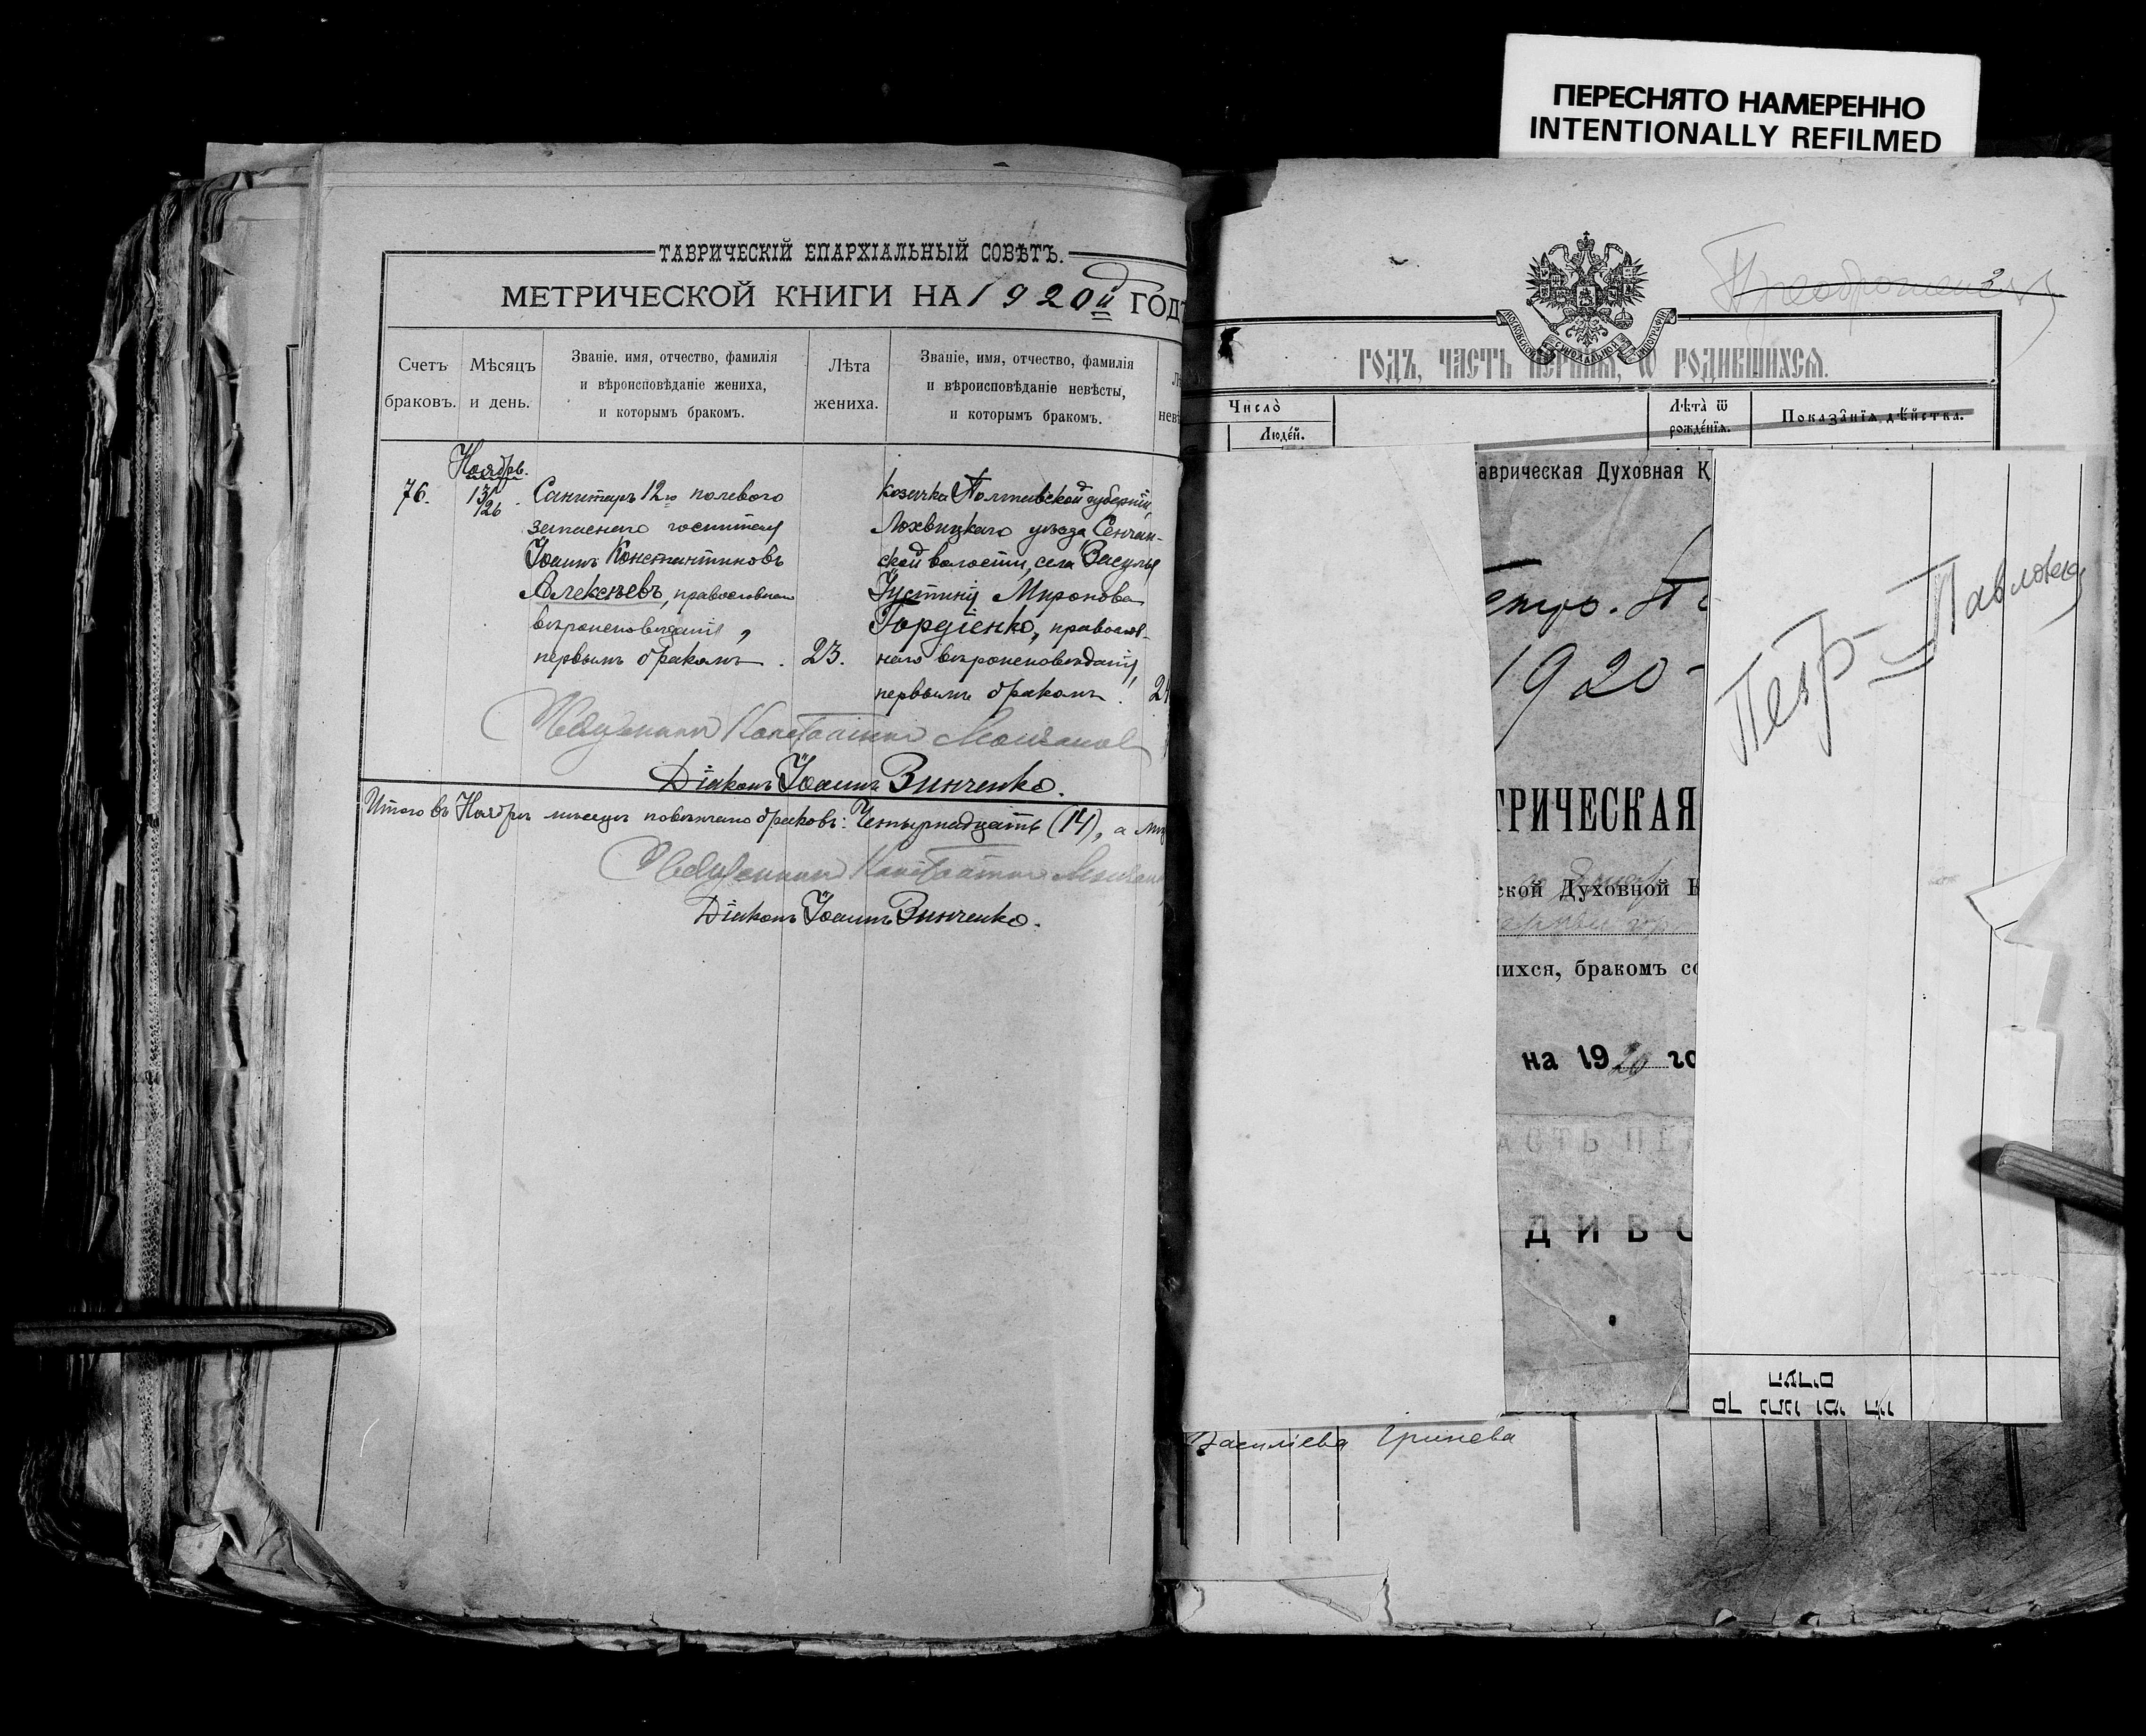 ПЕРЕСНЯТО НАМЕРЕННО
INTENTIONALLY REFILMED
ТАВРИЧЕСКІЙ ЕПАРХІАЛЬНЫЙ СОВѢТЪ.
МЕТРИЧЕСКОЙ КНИГИ НА 1920й ГОДЪ
Счетъ браковъ.
Мѣсяцъ и день.
Званіе, имя, отчество, фамилія
и вѣроисповѣданіе жениха,
и которымъ бракомъ.
Лѣта жениха.
Званіе, имя, отчество, фамилія
и вѣроисповѣданіе невѣсты,
и которымъ бракомъ.
Ноябрь.
76.
13/26.
Санитаръ 12го полевого
запаснаго госпиталя
Іоаннъ Константиновъ
Алексѣевъ, православнаго
вѣроисповѣданія,
первымъ бракомъ.
23.
Козачка Полтавской губерніи,
Лохвицкаго уѣзда, Сенчан-
ской волости, села Засулья
Іустинія Миронова
Гордіенко, православ-
наго вѣроисповѣданія,
первымъ бракомъ.
Священникъ Константинъ
Діаконъ Іоаннъ Зинченко.
Итого въ Ноябрѣ мѣсяцѣ повѣнчано браковъ: Четырнадцать (14), а
Священникъ Константинъ
Діаконъ Іоаннъ Зинченко.
МОСКОВСКОЙ СѴНОДАЛЬНОЙ ТИПОГРАФІИ
ГОДЪ, ЧАСТЬ ПЕРВАЯ, Ѿ РОДИВШИХСЯ.
Число̀
Люде́й.
Лѣта̀ ѿ
рожде́нїя.
Показа̑нїя дѣ́йства.
аврическая Духовная К
1920
ТРИЧЕСКАЯ
ской Духовной К
ихся, бракомъ со
на 1920 го
АСТЬ ПЕ
ДИВ
Петр-Павловск
Василіева Гринева